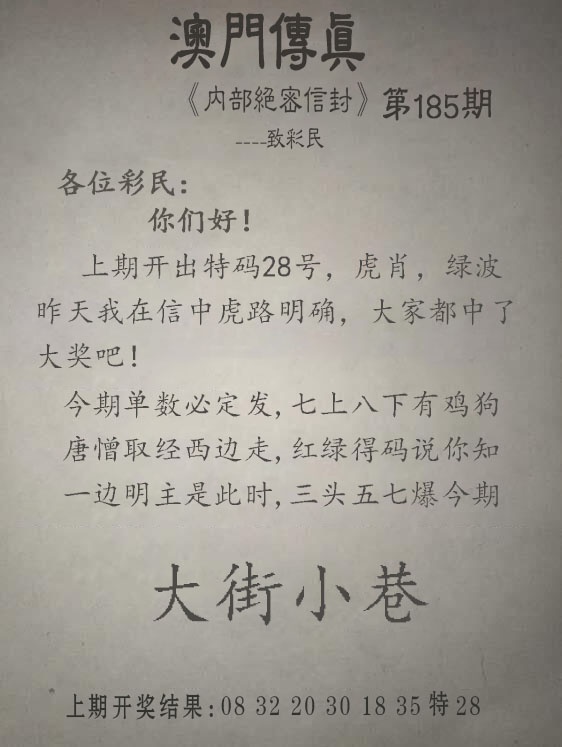 澳門傳真
《内部絕密信封》第185期
----致彩民
各位彩民:
你们好!
上期开出特码28号，虎肖，绿波
昨天我在信中虎路明确，大家都中了
大奖吧!
今期单数必定发,七上八下有鸡狗
唐憎取经西边走,红绿得码说你知
一边明主是此时,三头五七爆今期
大街小巷
上期开奖结果:08 32 20 30 18 35 特 28